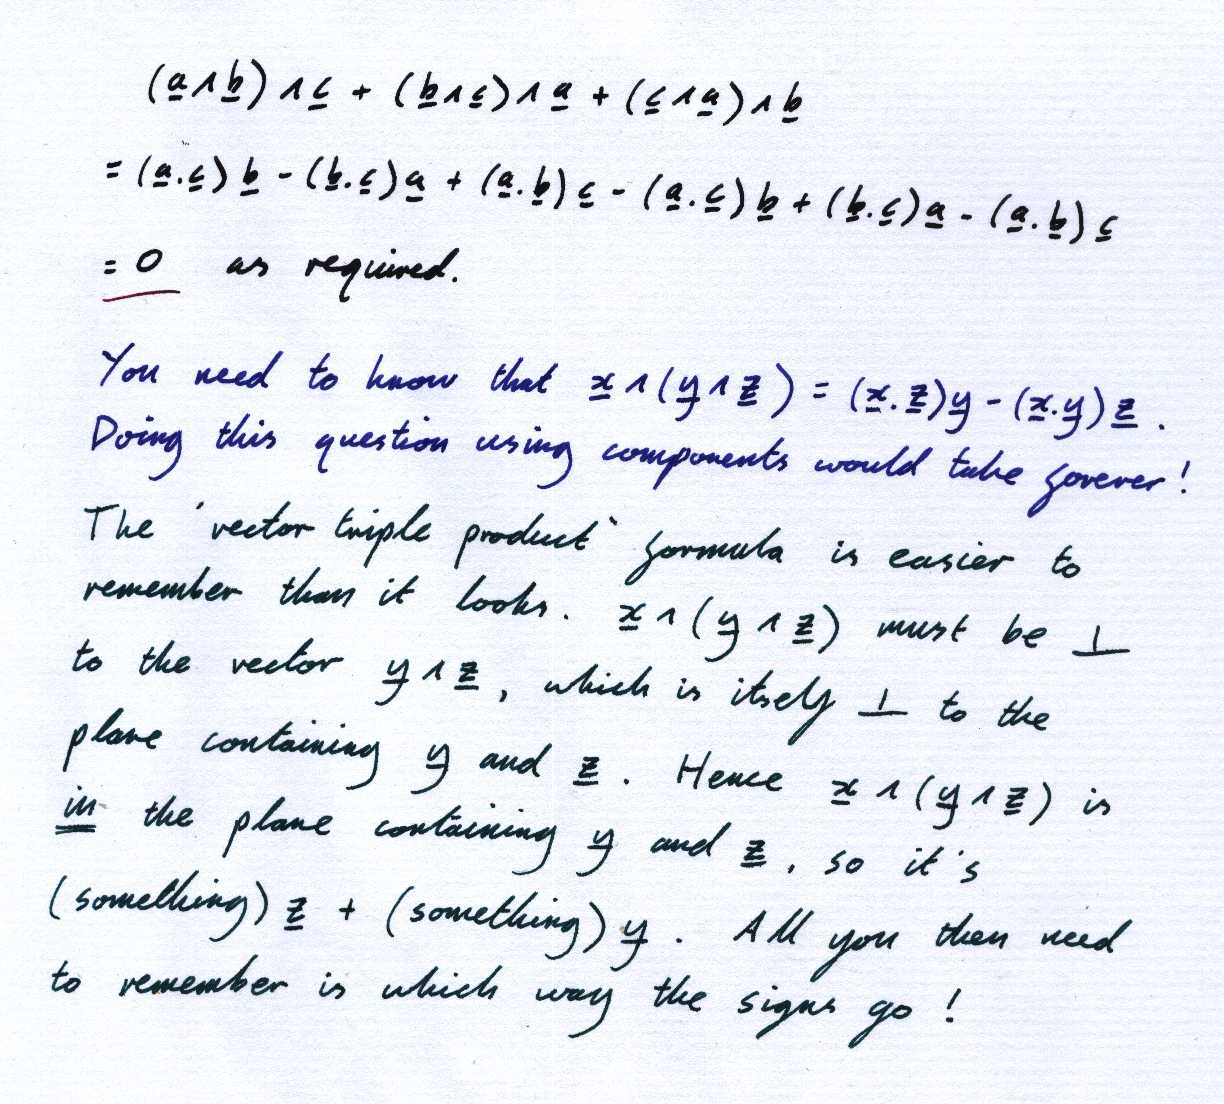 (a∧b)∧c + (b∧c)∧a + (c∧a)∧b
= (a.c)b - (b.c)a + (a.b)c - (a.c)b + (b.c)a - (a.b)c
= 0 as required.
You need to know that x∧(y∧z) = (x.z)y - (x.y)z.
Doing this question using components would take forever!
The 'vector triple product' formula is easier to
remember than it looks. x∧(y∧z) must be ⊥
to the vector y∧z, which is itself ⊥ to the
plane containing y and z. Hence x∧(y∧z) is
in the plane containing y and z, so it's
(something)z + (something)y. All you then need
to remember is which way the signs go!